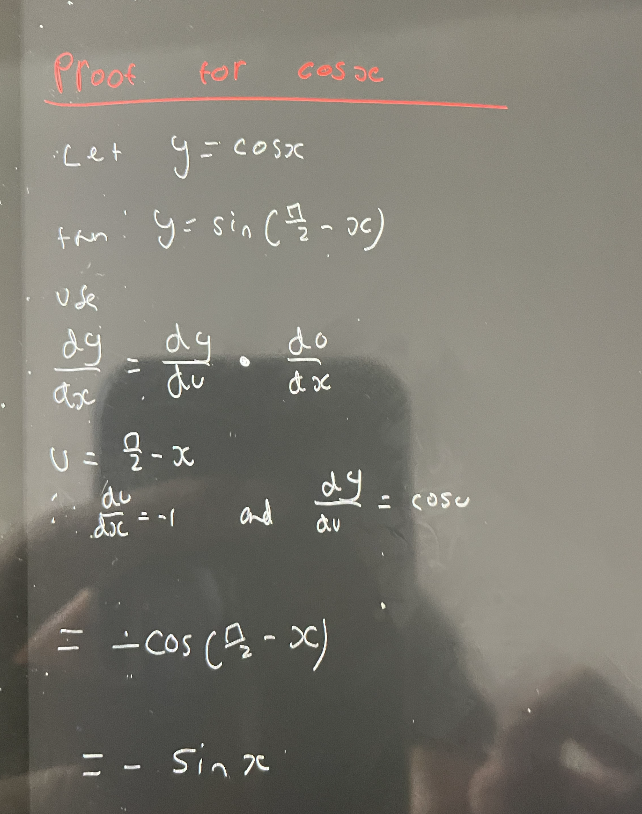 Proof for cosx
Let y = cosx
then y = sin(π/2 - x)
use
dy/dx = dy/du · du/dx
u = π/2 - x
∴ du/dx = -1 and dy/du = cosu
= -cos(π/2 - x)
= - sinx